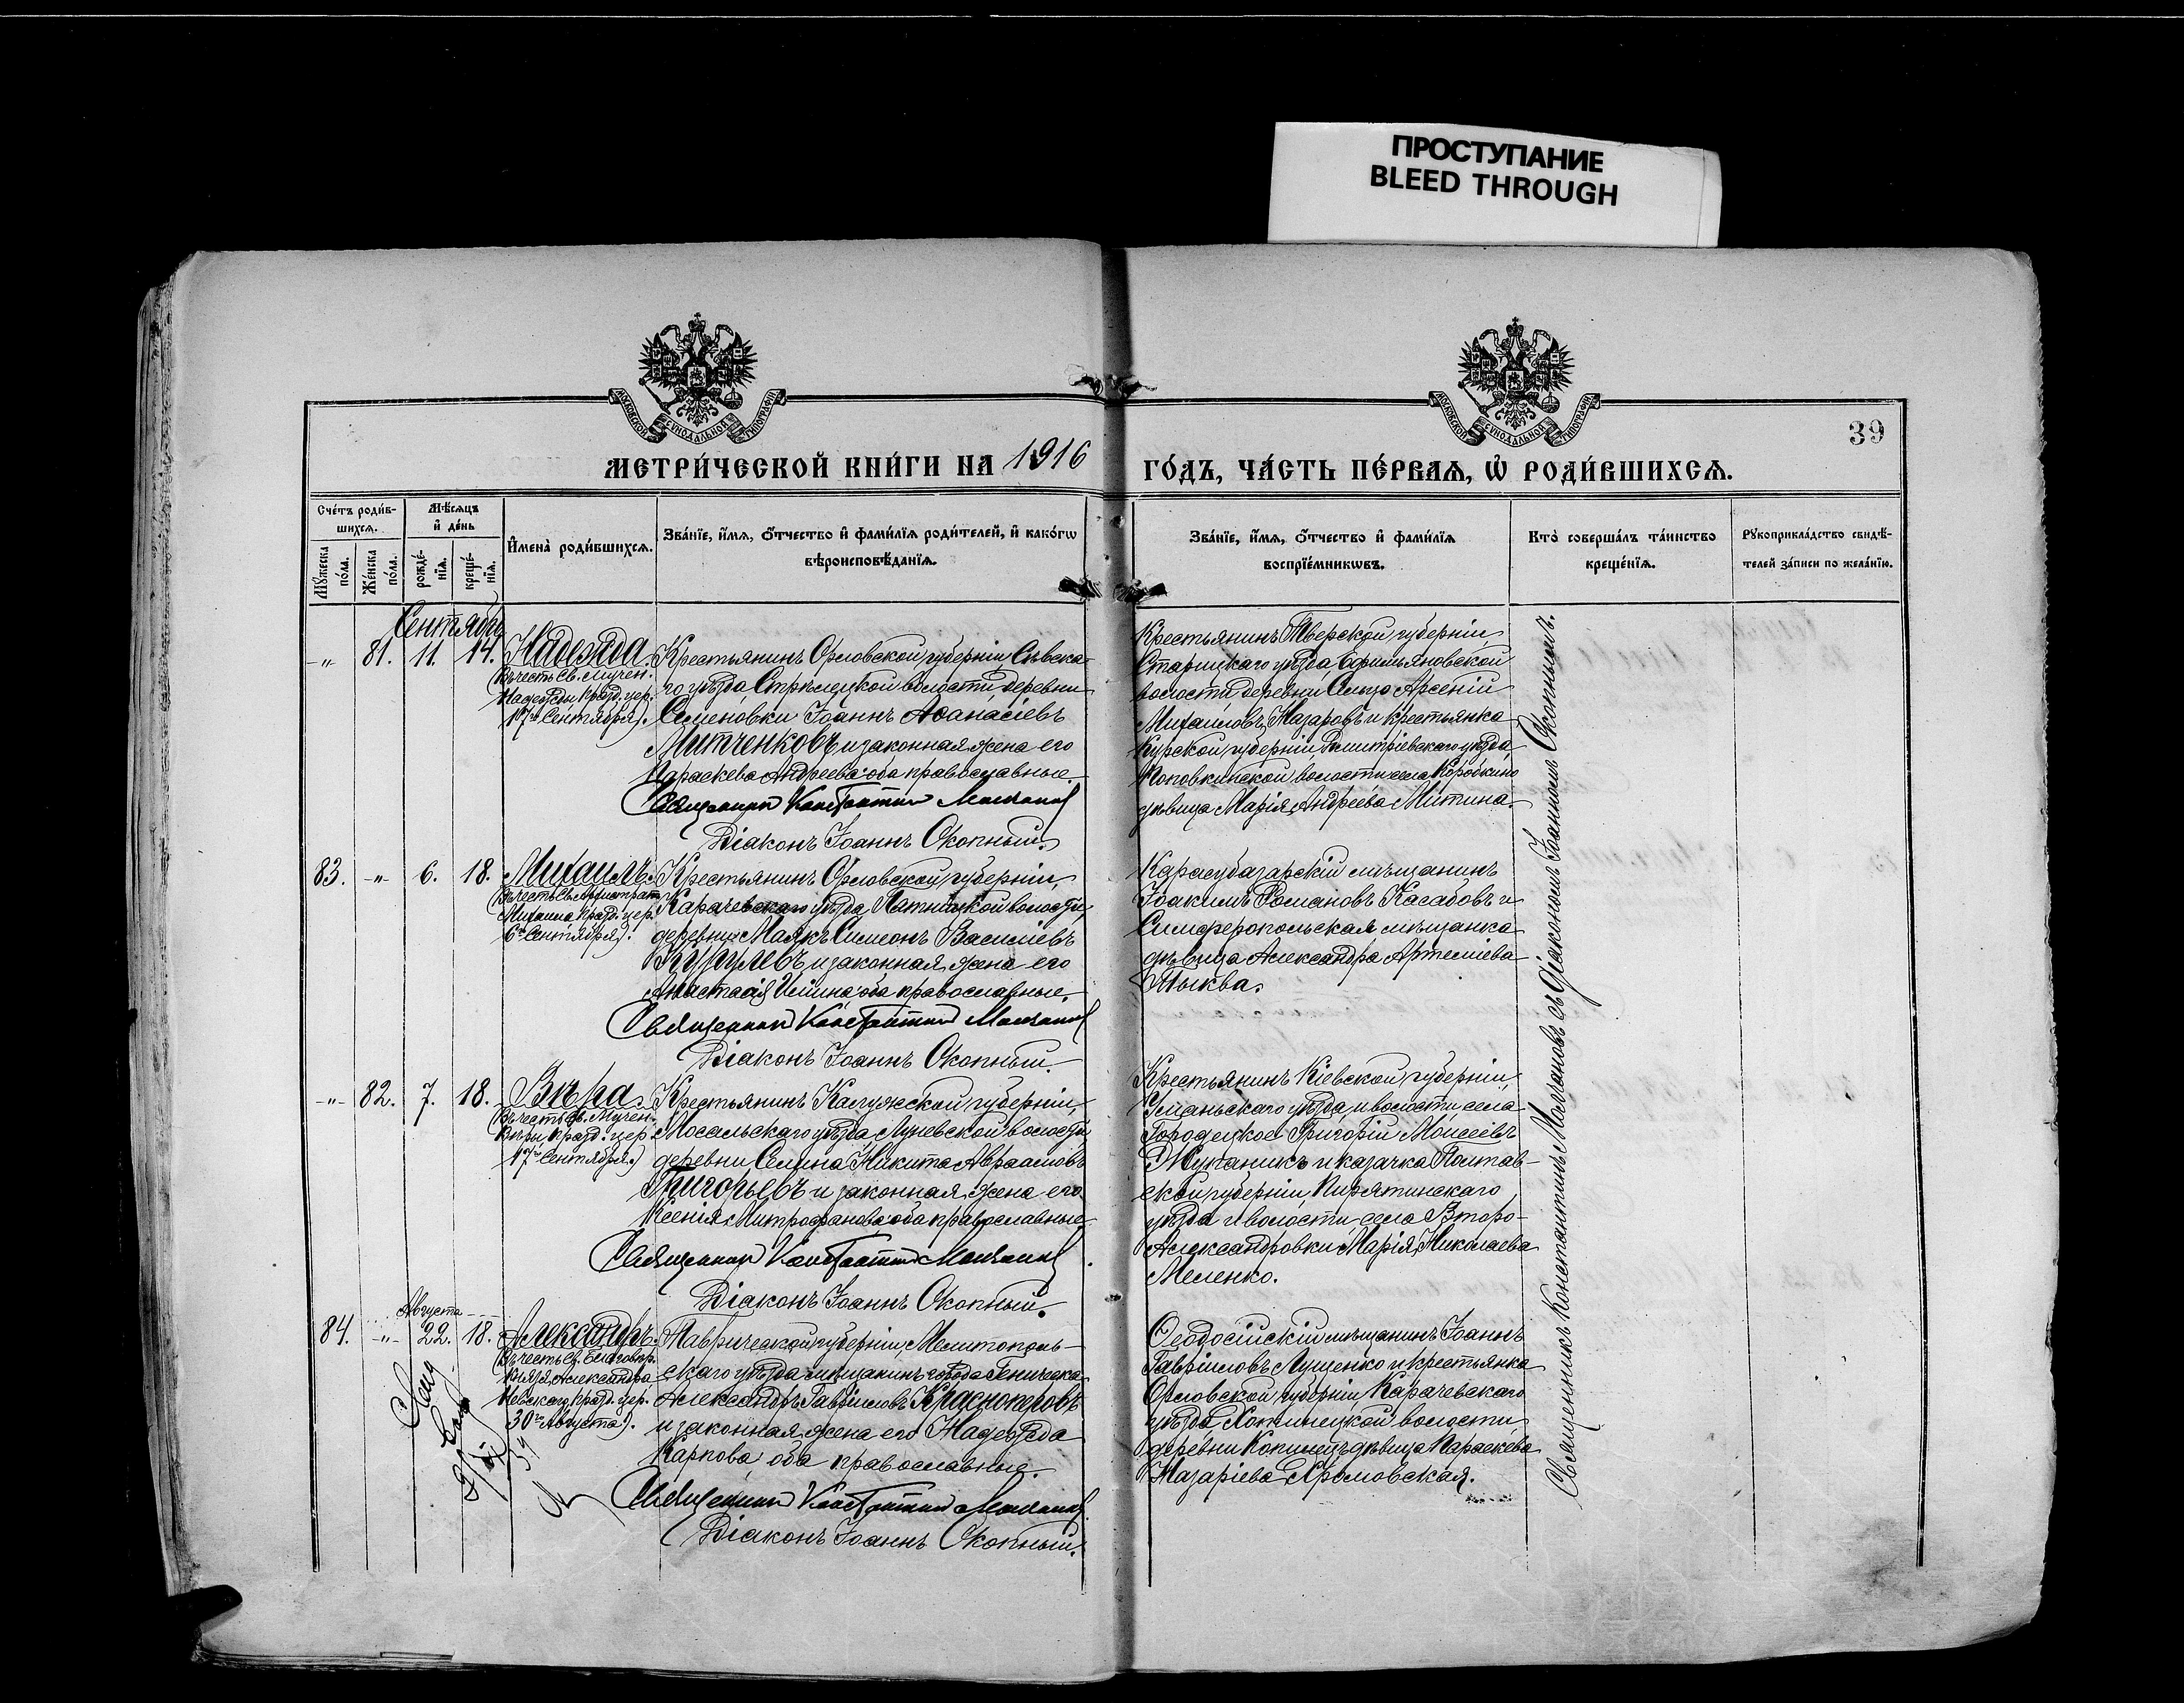 ПРОСТУПАНИЕ
BLEED THROUGH
39
МЕТРИ́ЧЕСКОЙ КНИ́ГИ НА 1916 ГО́ДЪ, ЧА́СТЬ ПЕ́РВАѦ, Ѡ РОДИ́ВШИХСѦ.
Сче́тъ роди́в-
шихсѧ.
Мѣ́сѧцъ
и҆ де́нь
Мꙋ́жеска по́ла.
Же́нска по́ла.
рожде́-
нїѧ.
креще́-
нїѧ.
И҆мена̀ роди́вшихсѧ.
Зва́нїе, и҆́мѧ, ѻ҆́тчество и҆ фами́лїѧ роди́телей, и҆ како́гѡ
вѣроисповѣ́данїѧ.
Зва́нїе, и҆́мѧ, ѻ҆́тчество и҆ фами́лїѧ
воспрїе́мникѡвъ.
Кто̀ соверша́лъ та́инство
креще́нїѧ.
Рꙋкоприкла́дство свидѣ́-
телей за́писи по жела́нїю.
Сентябрь
-„- 81. 11. 14. Надежда.
(Въ честь Св. Мучен.
Надежды празд. цер.
17го Сентября).
Крестьянинъ Орловской губерніи, Сѣвска-
го уѣзда, Стрѣлецкой волости, деревни
Семеновки Іоаннъ Аѳанасіевъ
Митченковъ и законная жена его
Параскева Андреева: оба православные.
Священникъ Константинъ Молчановъ
Діаконъ Іоаннъ Окопный.
Крестьянинъ Тверской губерніи,
Старицкаго уѣзда,
волости деревни Сельцо Арсеній
Михаиловъ Назаровъ и крестьянка
Курской губерніи Дмитріевскаго уѣзда,
Поповкинской волости села Коробкино
дѣвица Марія Андреева Митина.
83. -„- 6. 18. Михаилъ.
(Въ честь Св. Архистрат.
Михаила празд. цер.
6го Сентября).
Крестьянинъ Орловской губерніи,
Карачевскаго уѣзда, Пятницкой волости,
деревни Маякъ Симеонъ Василіевъ
и законная жена его
Анастасія оба православные.
Священникъ Константинъ Молчановъ
Діаконъ Іоаннъ Окопный.
Карасубазарскій мѣщанинъ
Іоакимъ Романовъ Касабовъ и
Симферопольская мѣщанка
дѣвица Александра Артеміева
Тыква.
-„- 82. 7. 18. Вѣра.
(Въ честь Св. Мучен.
Вѣры, празд. цер.
17го Сентября.)
Крестьянинъ Калужской губерніи,
Мосальскаго уѣзда, волости,
деревни Селина Никита Авраамовъ
Григорьевъ и законная жена его
Ксенія Митрофанова: оба православные.
Священникъ Константинъ Молчановъ
Діаконъ Іоаннъ Окопный.
Крестьянинъ Кіевской губерніи,
Уманьскаго уѣзда, и волости, села
Городецкое Григорій Моисеевъ
и казачка Полтав-
ской губерніи, Пирятинскаго
уѣзда и волости, села Второ-
Александровки Марія Николаева
Меленко.
Августа
84. -„- 22. 18. Александръ.
(Въ честь Св. Благовѣр.
Князя Александра
Невскаго, празд. цер.
30го Августа).
Таврической губерніи, Мелитополь-
скаго уѣзда мѣщанинъ города Геническа
Александръ Гавріиловъ Краснопровъ
и законная жена его Надежда
Карпова оба православные.
Священникъ Константинъ Молчановъ
Діаконъ Іоаннъ Окопный.
Ѳеодосійскій мѣщанинъ Іоаннъ
Гавріиловъ Лущенко и крестьянка
Орловской губерніи, Карачевскаго
уѣзда, Хотынецкой волости,
деревни дѣвица Параскева
Назаріева Хромовская.
Священникъ Константинъ Молчановъ съ діакономъ Іоанномъ Окопнымъ.